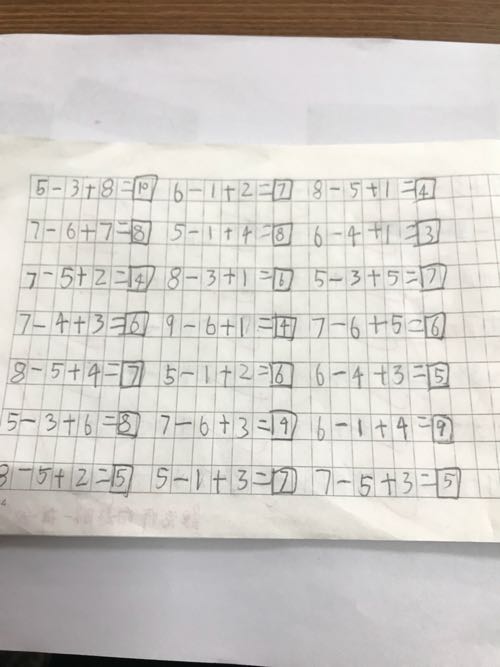 5-3+8=10 6-1+2=7 8-5+1=4
7-6+7=8 5-1+4=8 6-4+1=3
7-5+2=4 8-3+1=6 5-3+5=7
7-4+3=6 9-6+1=4 7-6+5=6
8-5+4=7 5-1+2=6 6-4+3=5
5-3+6=8 7-6+3=4 6-1+4=9
8-5+2=5 5-1+3=7 7-5+3=5